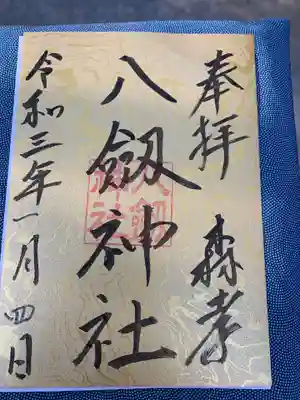 奉拝 森孝
八劔神社
八劔
神社
令和三年一月四日